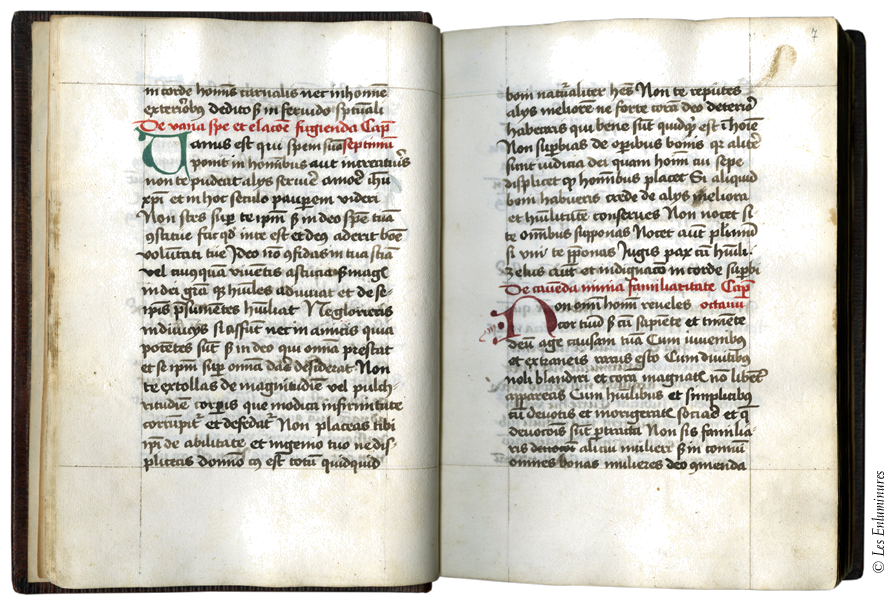 in corde homīs carnalis nec in homīe
exteriorib9 dedito s̄ in feruido sp̄tuali
De vana spe et elacōe fugienda Cap̄
Vanus est qui spem suā septimū
ponit in homībus aut in creaturis
non te pudeat alys seruire amore ihū
xp̄i et in hoc seculo pauperem videri
Non stes super te ip̄m s̄ in deo spē tuā
9stitue fac qd̄ in te est et deus aderit bōe
volūtati tue Ideo nō 9fidas in tua sciā
vel cuiusquā viuentis astucia s̄ magͥ
in dei grā q̄ hūiles adiuuat et de se
ip̄is p̄sumētes hūiliat Ne glorieris
in diuicys si assūt nec in amicis quia
potētes sūt s̄ in deo qui omīa prestat
et se ip̄m sup omīa dare desiderat Non
te extollas de magnitudīe vel pulch-
ritudīe corporis que modica infirmitate
corrūpit᷑ et defedat᷑ Non placeas tibi
ip̄i de abilitate et ingenio tuo ne dis-
pliceas domīo c9 est totū quidquid
7
boni nat᷑aliter hēs Non te reputes
alys meliorē ne forte corā deo deterior
habearis qui scit quidqd̄ est ī hoīe
Non supbias de operibus bonis qr̄ aliter
sunt iudicia dei quam homīū cui sepe
displicet qd̄ homībus placet Si aliquid
boni habueris crede de alys meliora
et hūilitatē conserues Non nocet si
te omībus supponas Nocet aut̄ plurimū
si vni te p̄ponas Jugis pax cū hūili
zelus aut̄ et indignacō in corde supbi
De cauēda nimia familiaritate Cap̄
Non omī homī reueles octauū
cor tuū s̄ cū sapiēte et timēte
deū age causam tuā Cum iuuenibus
et extraneis rarus esto Cum diuitibus
noli blandiri et corā magnatͥ nō libēt᷑
appareas Cum hūilibus et simplicibus
cū deuotis et morigeratͥ sociare et q̄
deuocōis sūt p̄tracta Non sis familia-
ris deuoto alicui mulieri s̄ in comūi
omnes bonas mulieres deo 9menda
© Les Enluminures